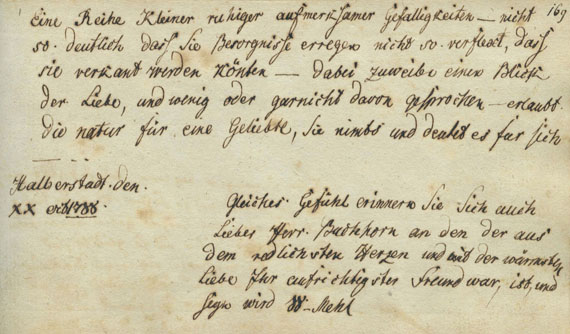 169
Eine Reihe Kleiner ruhiger aufmerksamer Gefälligkeiten — nicht
so deutlich dass Sie Besorgnisse erregen nicht so verstekt, dass
sie verkant werden könten — dabei zuweilen einen Blick
der Liebe, und wenig oder garnicht davon gesprochen — erlaubt
die natur für eine Geliebte, Sie nimts und deutet es für sich
Halberstadt. den.
XX
Gleiches Gefühl erinnern Sie Sich auch
Liebes Herr. Buchhorn an den der aus
dem redlichsten Herzen und mit der wärmsten
Liebe Ihr aufrichtigster Freund war, ist, und
seyn wird W. Mehl